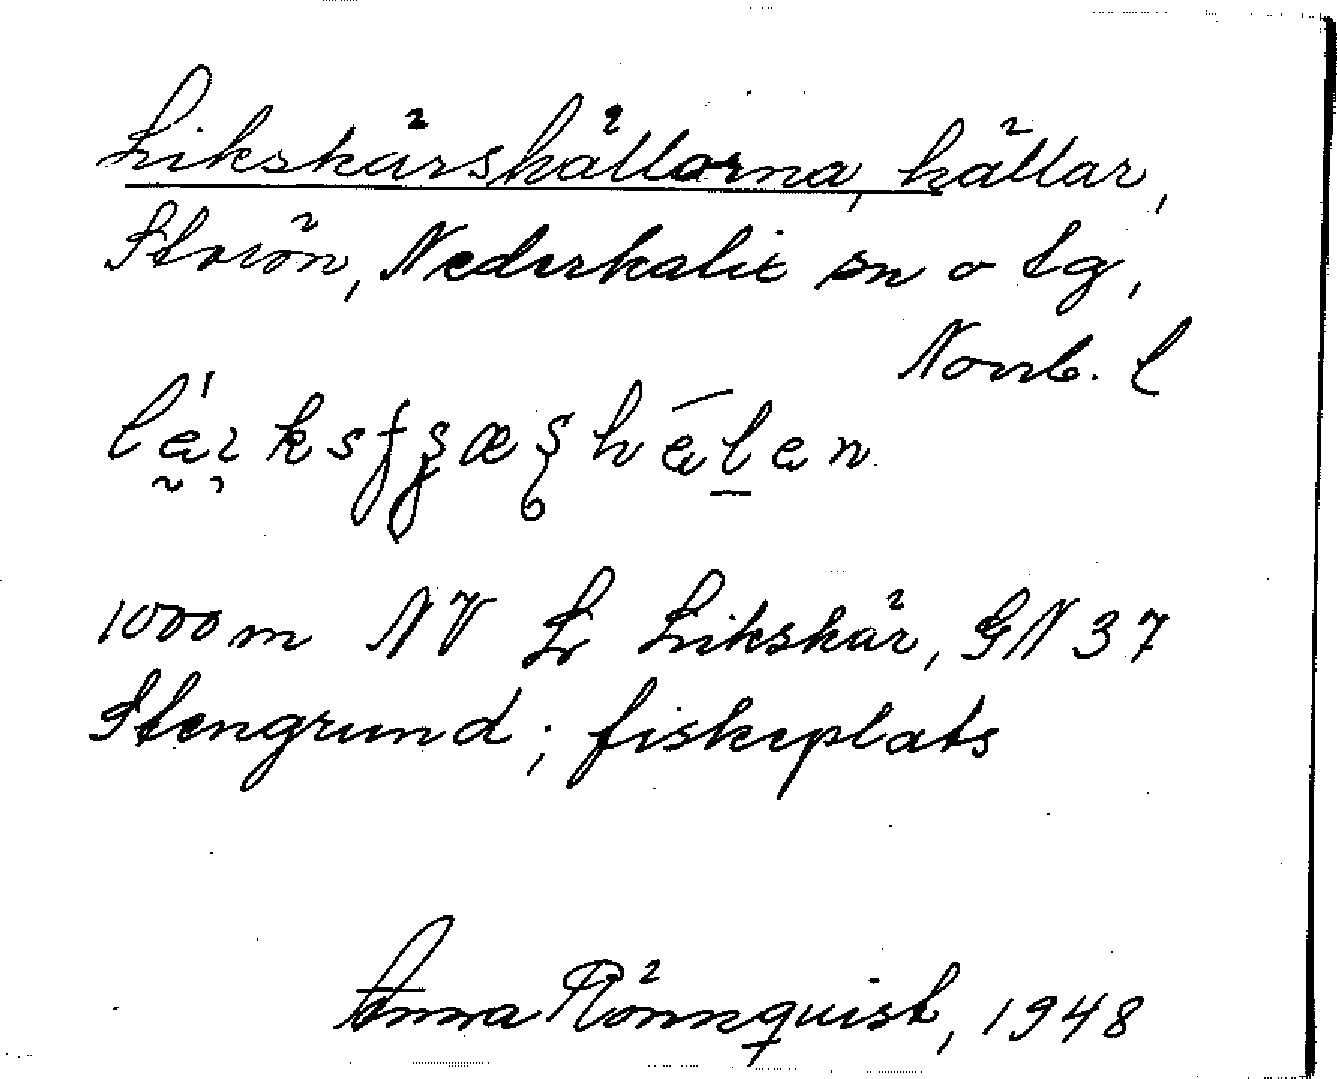 Likskärshällorna, hällar,
Storön, Nederkalix sn o tg,
Norrb. l
1000 m NV Likskär, GN 37
Stengrund; fiskeplats
Anna Rönnquist, 1948